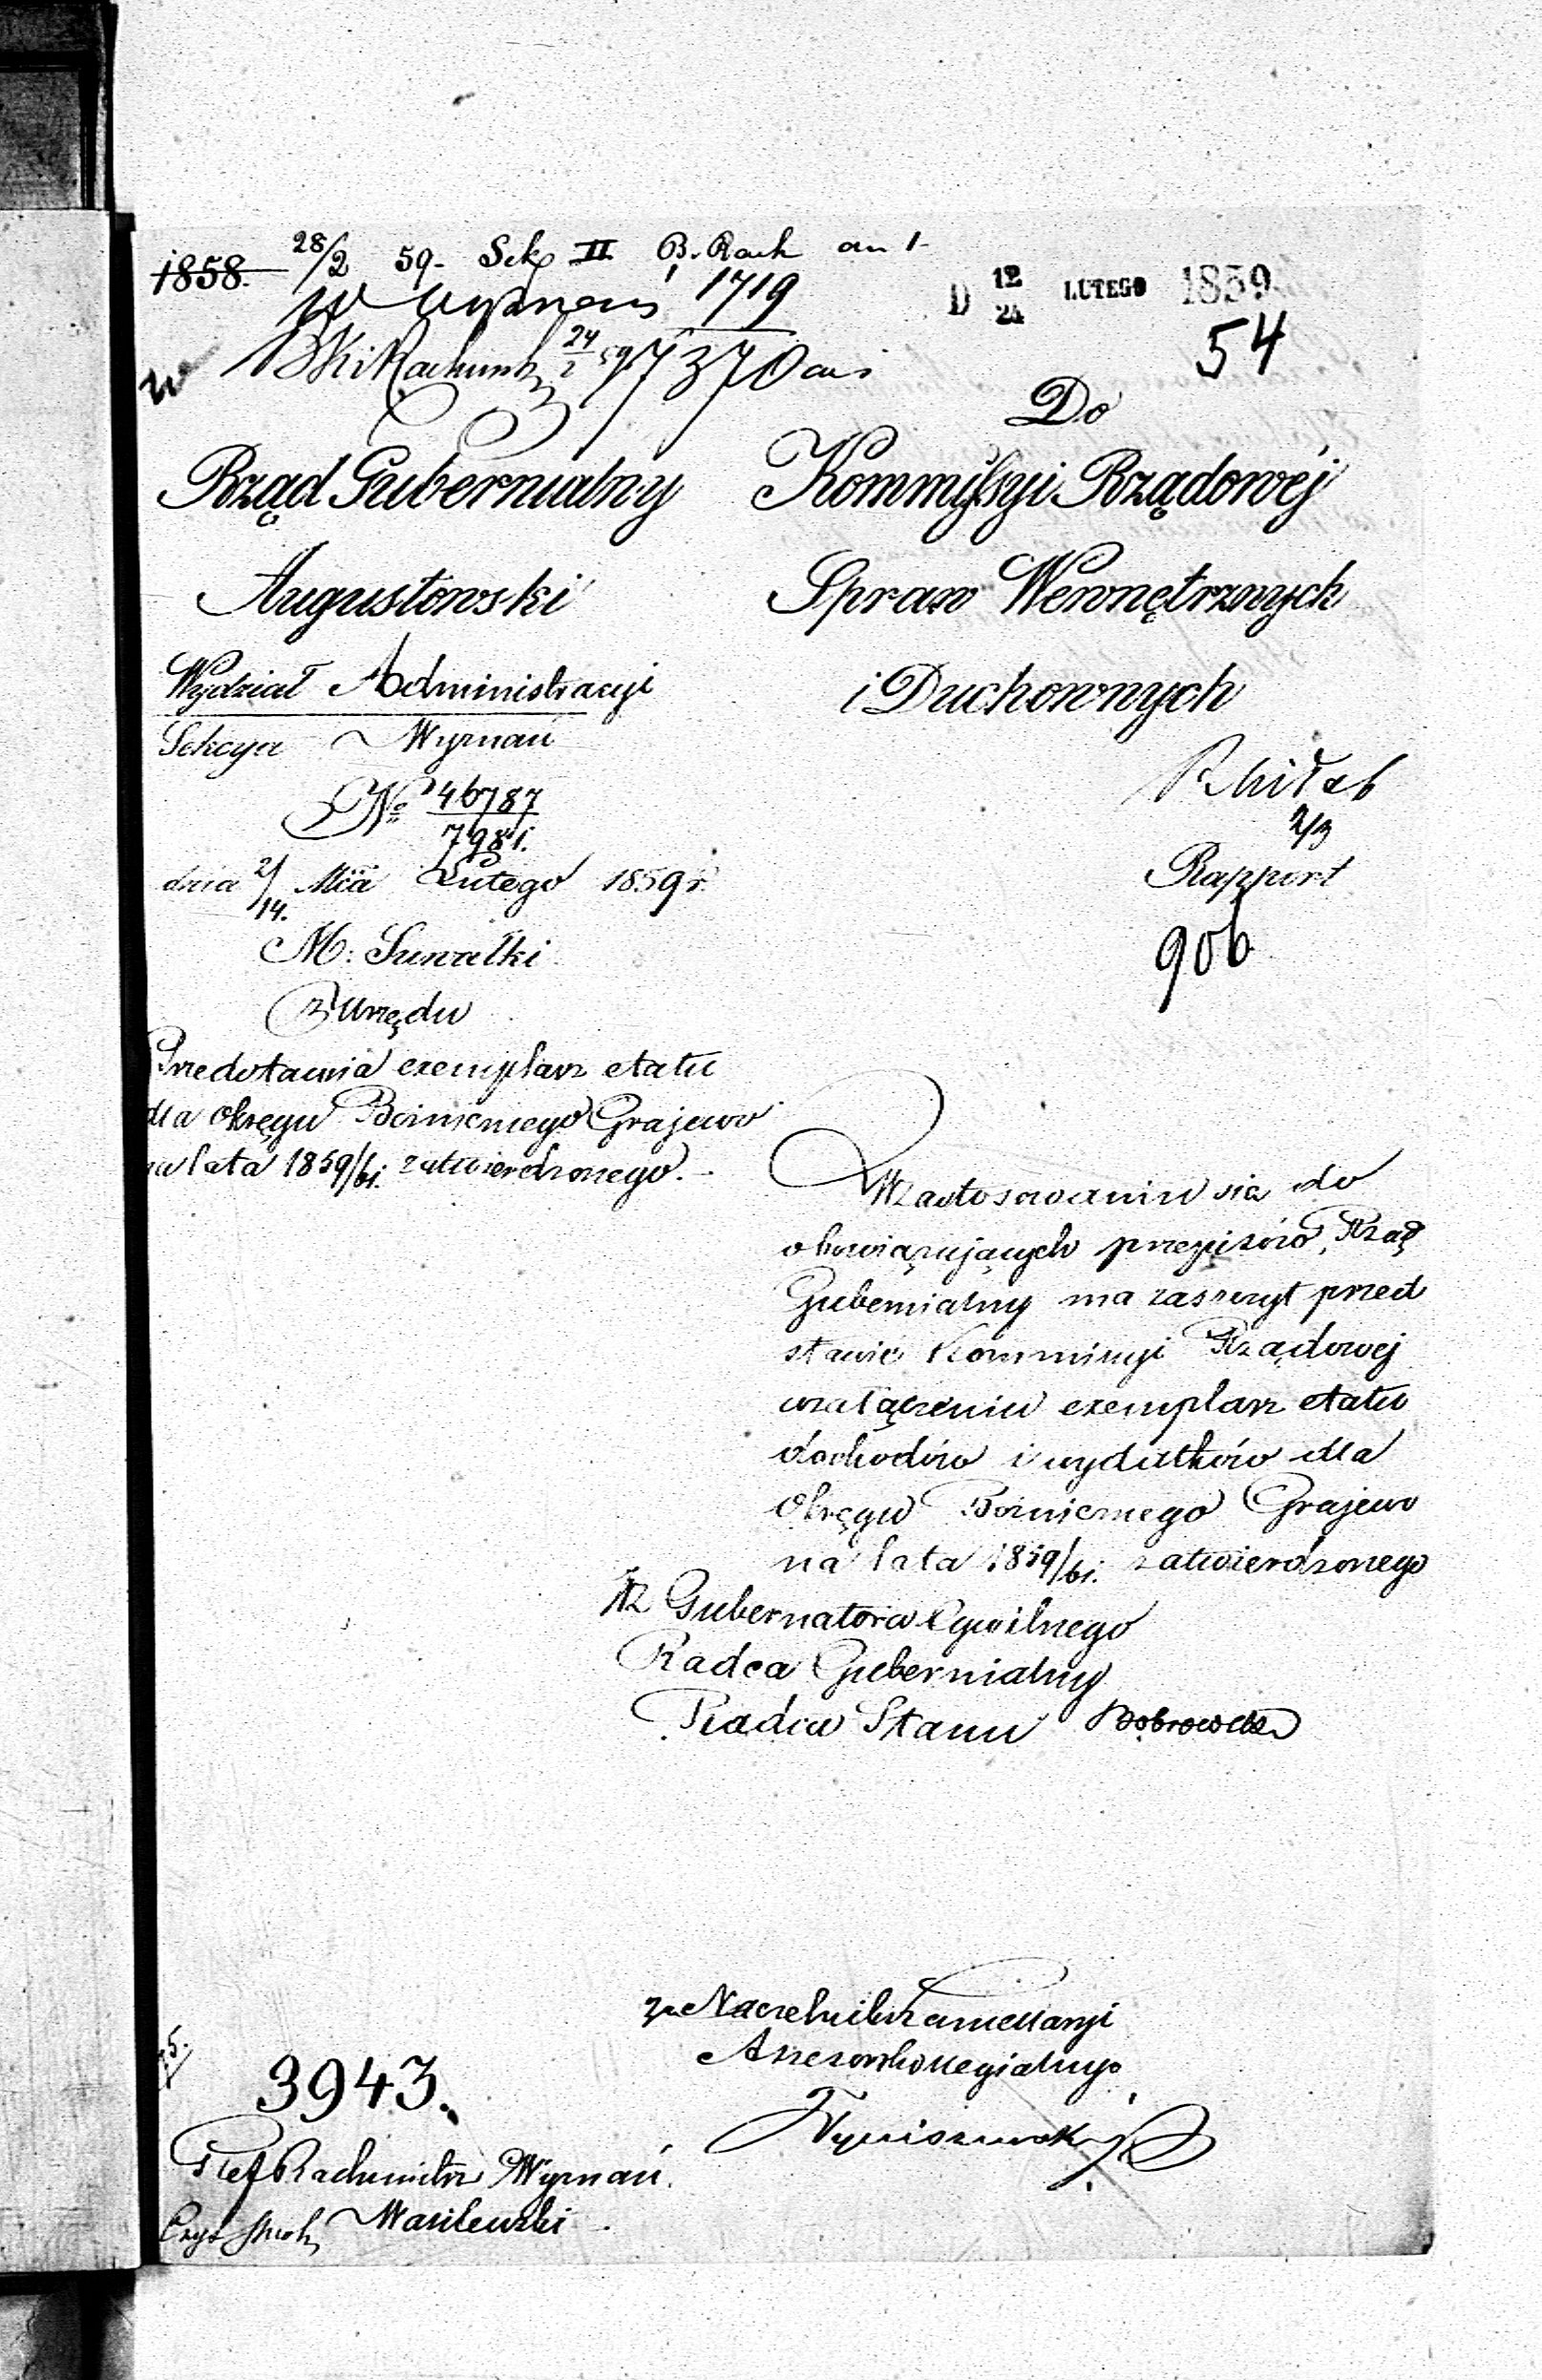 1858.
28/2 59. Sek II B. Rach an 1
W Wyznań 1719
24/2 59 7370
D 12/24 LUTEGO 1859
54
Rząd Gubernialny
Augustowski
Wydział Administracyi
Sekcya Wyznań
№ 46787/7981.
dnia 2/14. Mca Lutego 1859 r.
M: Suwałki
z Urzędu
Przedstawia exemplarz etatu
dla Okręgu Bożnicznego Grajewo
na lata 1859/61. zatwierdzonego.
Do
Kommyssyi Rządowéj
Spraw Wewnętrznych
i Duchownych
2/3
Rapport
906
W zastosowaniu się do
obowiązujących przepisów, Rząd
Gubernialny ma zaszczyt przed
stawić Kommissyi Rządowej
w załączeniu exemplarz etatu
dochodów i wydatków dla
Okręgu Bożnicznego Grajewo
na lata 1859/61. zatwierdzonego
Gubernatora Cywilnego
Radca Gubernialny
Radca Stanu Dobrowolski
za Naczelnika Kancellaryi
Assessor Kollegialny
3943.
Ref Rachmistrz Wyznań.
Wasilewski